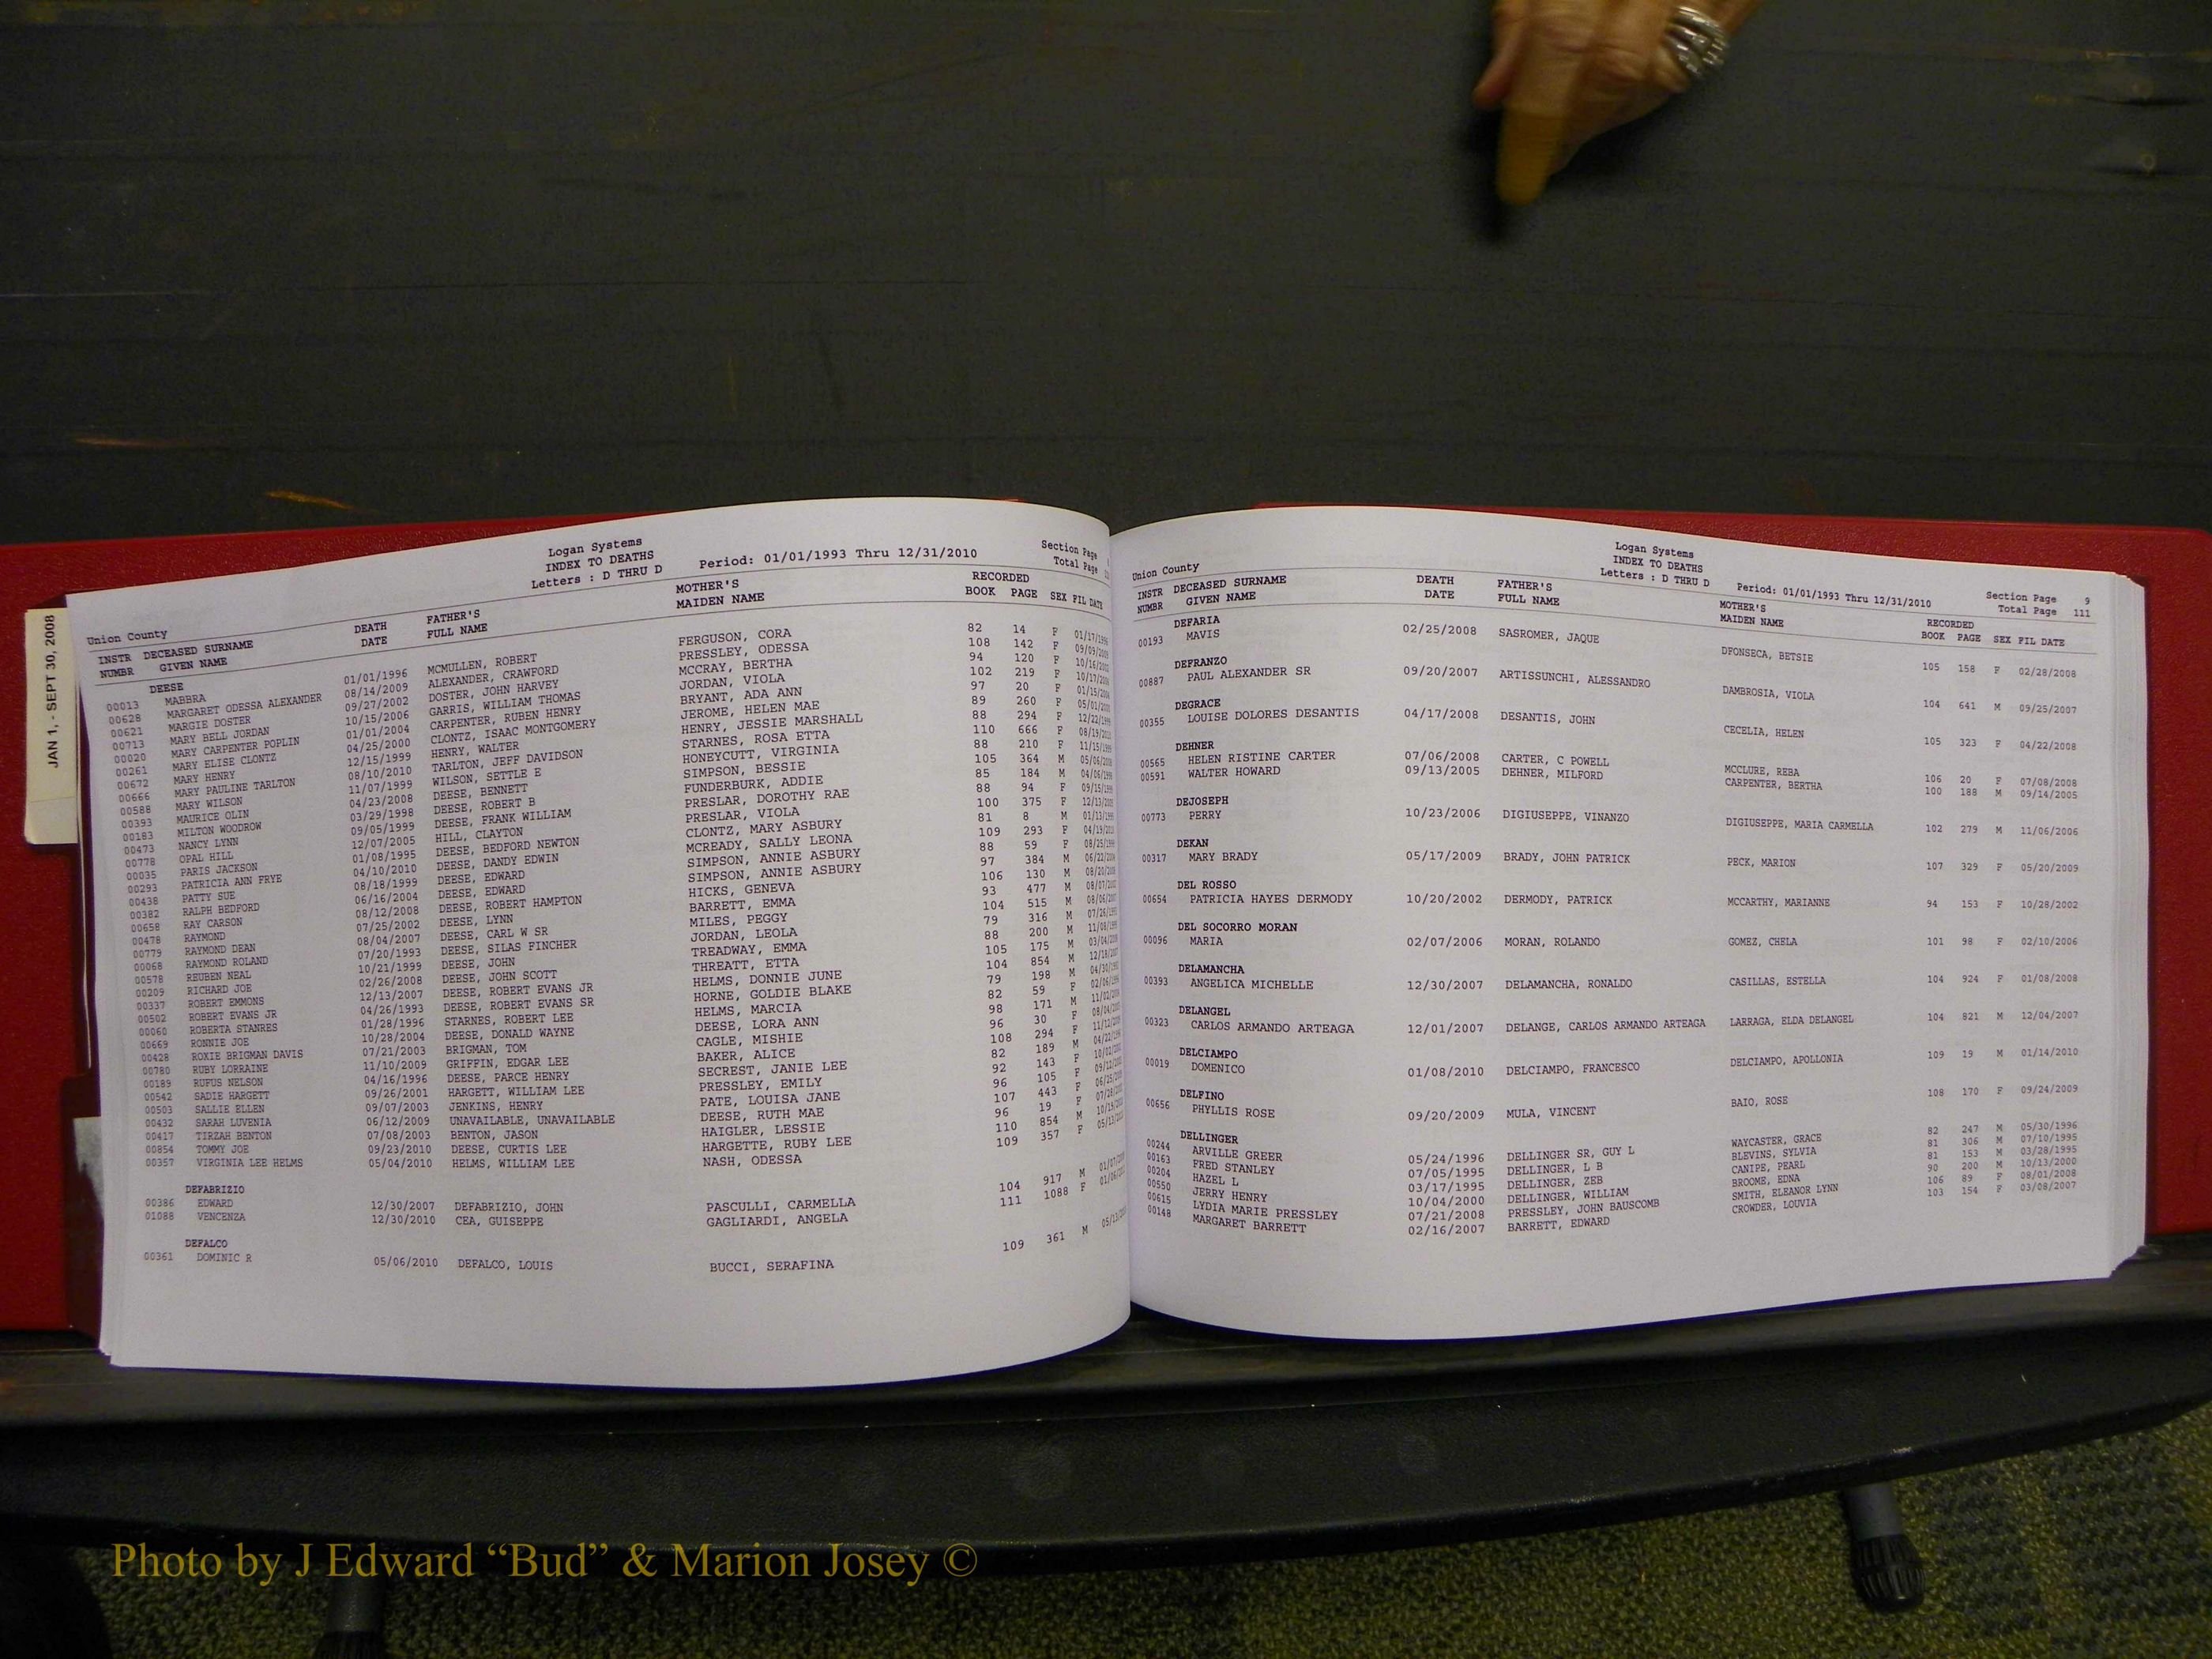 JAN 1, - SEPT 30, 2008
Logan Systems
INDEX TO DEATHS
Letters : D THRU D Period: 01/01/1993 Thru 12/31/2010
Section Page
Total Page
Union County
INSTR DECEASED SURNAME DEATH FATHER'S MOTHER'S RECORDED
NUMBR GIVEN NAME DATE FULL NAME MAIDEN NAME BOOK PAGE SEX FIL DATE
DEESE
00013 MABBRA 01/01/1996 MCMULLEN, ROBERT FERGUSON, CORA 82 14 F
00628 MARGARET ODESSA ALEXANDER 08/14/2009 ALEXANDER, CRAWFORD PRESSLEY, ODESSA 108 142 F
00621 MARGIE DOSTER 09/27/2002 DOSTER, JOHN HARVEY MCCRAY, BERTHA 94 120 F
00713 MARY BELL JORDAN 10/15/2006 GARRIS, WILLIAM THOMAS JORDAN, VIOLA 102 219 F
00020 MARY CARPENTER POPLIN 01/01/2004 CARPENTER, RUBEN HENRY BRYANT, ADA ANN 97 20 F
00261 MARY ELISE CLONTZ 04/25/2000 CLONTZ, ISAAC MONTGOMERY JEROME, HELEN MAE 89 260 F
00672 MARY HENRY 12/15/1999 HENRY, WALTER HENRY, JESSIE MARSHALL 88 294 F
00666 MARY PAULINE TARLTON 08/10/2010 TARLTON, JEFF DAVIDSON STARNES, ROSA ETTA 110 666 F
00588 MARY WILSON 11/07/1999 WILSON, SETTLE E HONEYCUTT, VIRGINIA 88 210 F
00393 MAURICE OLIN 04/23/2008 DEESE, BENNETT SIMPSON, BESSIE 105 364 M
00183 MILTON WOODROW 03/29/1998 DEESE, ROBERT B FUNDERBURK, ADDIE 85 184 M
00473 NANCY LYNN 09/05/1999 DEESE, FRANK WILLIAM PRESLAR, DOROTHY RAE 88 94 F
00778 OPAL HILL 12/07/2005 HILL, CLAYTON PRESLAR, VIOLA 100 375 F
00035 PARIS JACKSON 01/08/1995 DEESE, BEDFORD NEWTON CLONTZ, MARY ASBURY 81 8 M
00293 PATRICIA ANN FRYE 04/10/2010 DEESE, DANDY EDWIN MCREADY, SALLY LEONA 109 293 F
00438 PATTY SUE 08/18/1999 DEESE, EDWARD SIMPSON, ANNIE ASBURY 88 59 F
00382 RALPH BEDFORD 06/16/2004 DEESE, EDWARD SIMPSON, ANNIE ASBURY 97 384 M
00658 RAY CARSON 08/12/2008 DEESE, ROBERT HAMPTON HICKS, GENEVA 106 130 M
00478 RAYMOND 07/25/2002 DEESE, LYNN BARRETT, EMMA 93 477 M
00779 RAYMOND DEAN 08/04/2007 DEESE, CARL W SR MILES, PEGGY 104 515 M
00068 RAYMOND ROLAND 07/20/1993 DEESE, SILAS FINCHER JORDAN, LEOLA 79 316 M
00578 REUBEN NEAL 10/21/1999 DEESE, JOHN TREADWAY, EMMA 88 200 M
00209 RICHARD JOE 02/26/2008 DEESE, JOHN SCOTT THREATT, ETTA 105 175 M
00337 ROBERT EMMONS 12/13/2007 DEESE, ROBERT EVANS JR HELMS, DONNIE JUNE 104 854 M
00502 ROBERT EVANS JR 04/26/1993 DEESE, ROBERT EVANS SR HORNE, GOLDIE BLAKE 79 198 M
00060 ROBERTA STANRES 01/28/1996 STARNES, ROBERT LEE HELMS, MARCIA 82 59 F
00669 RONNIE JOE 10/28/2004 DEESE, DONALD WAYNE DEESE, LORA ANN 98 171 M
00428 ROXIE BRIGMAN DAVIS 07/21/2003 BRIGMAN, TOM CAGLE, MISHIE 96 30 F
00780 RUBY LORRAINE 11/10/2009 GRIFFIN, EDGAR LEE BAKER, ALICE 108 294 F
00189 RUFUS NELSON 04/16/1996 DEESE, PARCE HENRY SECREST, JANIE LEE 82 189 M
00542 SADIE HARGETT 09/26/2001 HARGETT, WILLIAM LEE PRESSLEY, EMILY 92 143 F
00503 SALLIE ELLEN 09/07/2003 JENKINS, HENRY PATE, LOUISA JANE 96 105 F
00432 SARAH LUVENIA 06/12/2009 UNAVAILABLE, UNAVAILABLE DEESE, RUTH MAE 107 443 F
00417 TIRZAH BENTON 07/08/2003 BENTON, JASON HAIGLER, LESSIE 96 19 F
00854 TOMMY JOE 09/23/2010 DEESE, CURTIS LEE HARGETTE, RUBY LEE 110 854 M
00357 VIRGINIA LEE HELMS 05/04/2010 HELMS, WILLIAM LEE NASH, ODESSA 109 357 F
DEFABRIZIO
00386 EDWARD 12/30/2007 DEFABRIZIO, JOHN PASCULLI, CARMELLA 104 917 M
01088 VENCENZA 12/30/2010 CEA, GUISEPPE GAGLIARDI, ANGELA 111 1088 F
DEFALCO
00361 DOMINIC R 05/06/2010 DEFALCO, LOUIS BUCCI, SERAFINA 109 361 M
Logan Systems
INDEX TO DEATHS
Letters : D THRU D Period: 01/01/1993 Thru 12/31/2010
Section Page 9
Total Page 111
Union County
INSTR DECEASED SURNAME DEATH FATHER'S MOTHER'S RECORDED
NUMBR GIVEN NAME DATE FULL NAME MAIDEN NAME BOOK PAGE SEX FIL DATE
DEFARIA
00193 MAVIS 02/25/2008 SASROMER, JAQUE DFONSECA, BETSIE 105 158 F 02/28/2008
DEFRANZO
00887 PAUL ALEXANDER SR 09/20/2007 ARTISSUNCHI, ALESSANDRO DAMBROSIA, VIOLA 104 641 M 09/25/2007
DEGRACE
00355 LOUISE DOLORES DESANTIS 04/17/2008 DESANTIS, JOHN CECELIA, HELEN 105 323 F 04/22/2008
DEHNER
00565 HELEN RISTINE CARTER 07/06/2008 CARTER, C POWELL MCCLURE, REBA 106 20 F 07/08/2008
00591 WALTER HOWARD 09/13/2005 DEHNER, MILFORD CARPENTER, BERTHA 100 188 M 09/14/2005
DEJOSEPH
00773 PERRY 10/23/2006 DIGIUSEPPE, VINANZO DIGIUSEPPE, MARIA CARMELLA 102 279 M 11/06/2006
DEKAN
00317 MARY BRADY 05/17/2009 BRADY, JOHN PATRICK PECK, MARION 107 329 F 05/20/2009
DEL ROSSO
00654 PATRICIA HAYES DERMODY 10/20/2002 DERMODY, PATRICK MCCARTHY, MARIANNE 94 153 F 10/28/2002
DEL SOCORRO MORAN
00096 MARIA 02/07/2006 MORAN, ROLANDO GOMEZ, CHELA 101 98 F 02/10/2006
DELAMANCHA
00393 ANGELICA MICHELLE 12/30/2007 DELAMANCHA, RONALDO CASILLAS, ESTELLA 104 924 F 01/08/2008
DELANGEL
00323 CARLOS ARMANDO ARTEAGA 12/01/2007 DELANGE, CARLOS ARMANDO ARTEAGA LARRAGA, ELDA DELANGEL 104 821 M 12/04/2007
DELCIAMPO
00019 DOMENICO 01/08/2010 DELCIAMPO, FRANCESCO DELCIAMPO, APOLLONIA 109 19 M 01/14/2010
DELFINO
00656 PHYLLIS ROSE 09/20/2009 MULA, VINCENT BAIO, ROSE 108 170 F 09/24/2009
DELLINGER
00244 ARVILLE GREER 05/24/1996 DELLINGER SR, GUY L WAYCASTER, GRACE 82 247 M 05/30/1996
00163 FRED STANLEY 07/05/1995 DELLINGER, L B BLEVINS, SYLVIA 81 306 M 07/10/1995
00204 HAZEL L 03/17/1995 DELLINGER, ZEB CANIPE, PEARL 81 153 M 03/28/1995
00550 JERRY HENRY 10/04/2000 DELLINGER, WILLIAM BROOME, EDNA 90 200 M 10/13/2000
00615 LYDIA MARIE PRESSLEY 07/21/2008 PRESSLEY, JOHN BAUSCOMB SMITH, ELEANOR LYNN 106 89 F 08/01/2008
00148 MARGARET BARRETT 02/16/2007 BARRETT, EDWARD CROWDER, LOUVIA 103 154 F 03/08/2007
Photo by J Edward “Bud” & Marion Josey ©